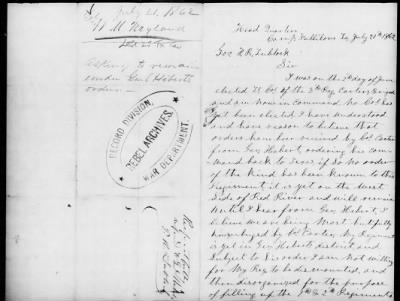 July 21, 1862
W. M. Neyland
Asking to remain
under Gen Heberts
orders
RECORD DIVISION
REBEL ARCHIVES
WAR DEPARTMENT
Head Quarters
July 21st 1862
Gov F. R. Lubbock
Sir
I was on the 2nd day of June
elected Lt Col of the 3rd Reg Carters Brigade
and am now in command No Col has
yet been elected I have understood
and have reason to believe that
orders have been received by Col Carter
from Gen Hebert, ordering his com-
mand back to Texas if so No order
of the kind has been known to this
Regiment it is yet on the West
side of Red River and will remain
until I hear from Gen Hebert, I
believe we are being most
by Col Carter, My Regiment
is yet in Gen Heberts district and
subject to his order I am Not willing
for My Reg to be dismounted, and
then disorganized for the purpose
of filling up the 1st & 2nd Regiments